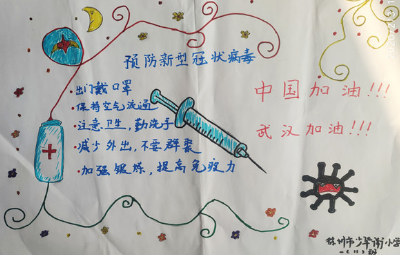 预防新型冠状病毒
出门戴口罩
保持空气流通
注意卫生，勤洗手
减少外出，不要群聚
加强锻炼，提高免疫力
中国加油！！！
武汉加油！！！
林州市少年谢小学